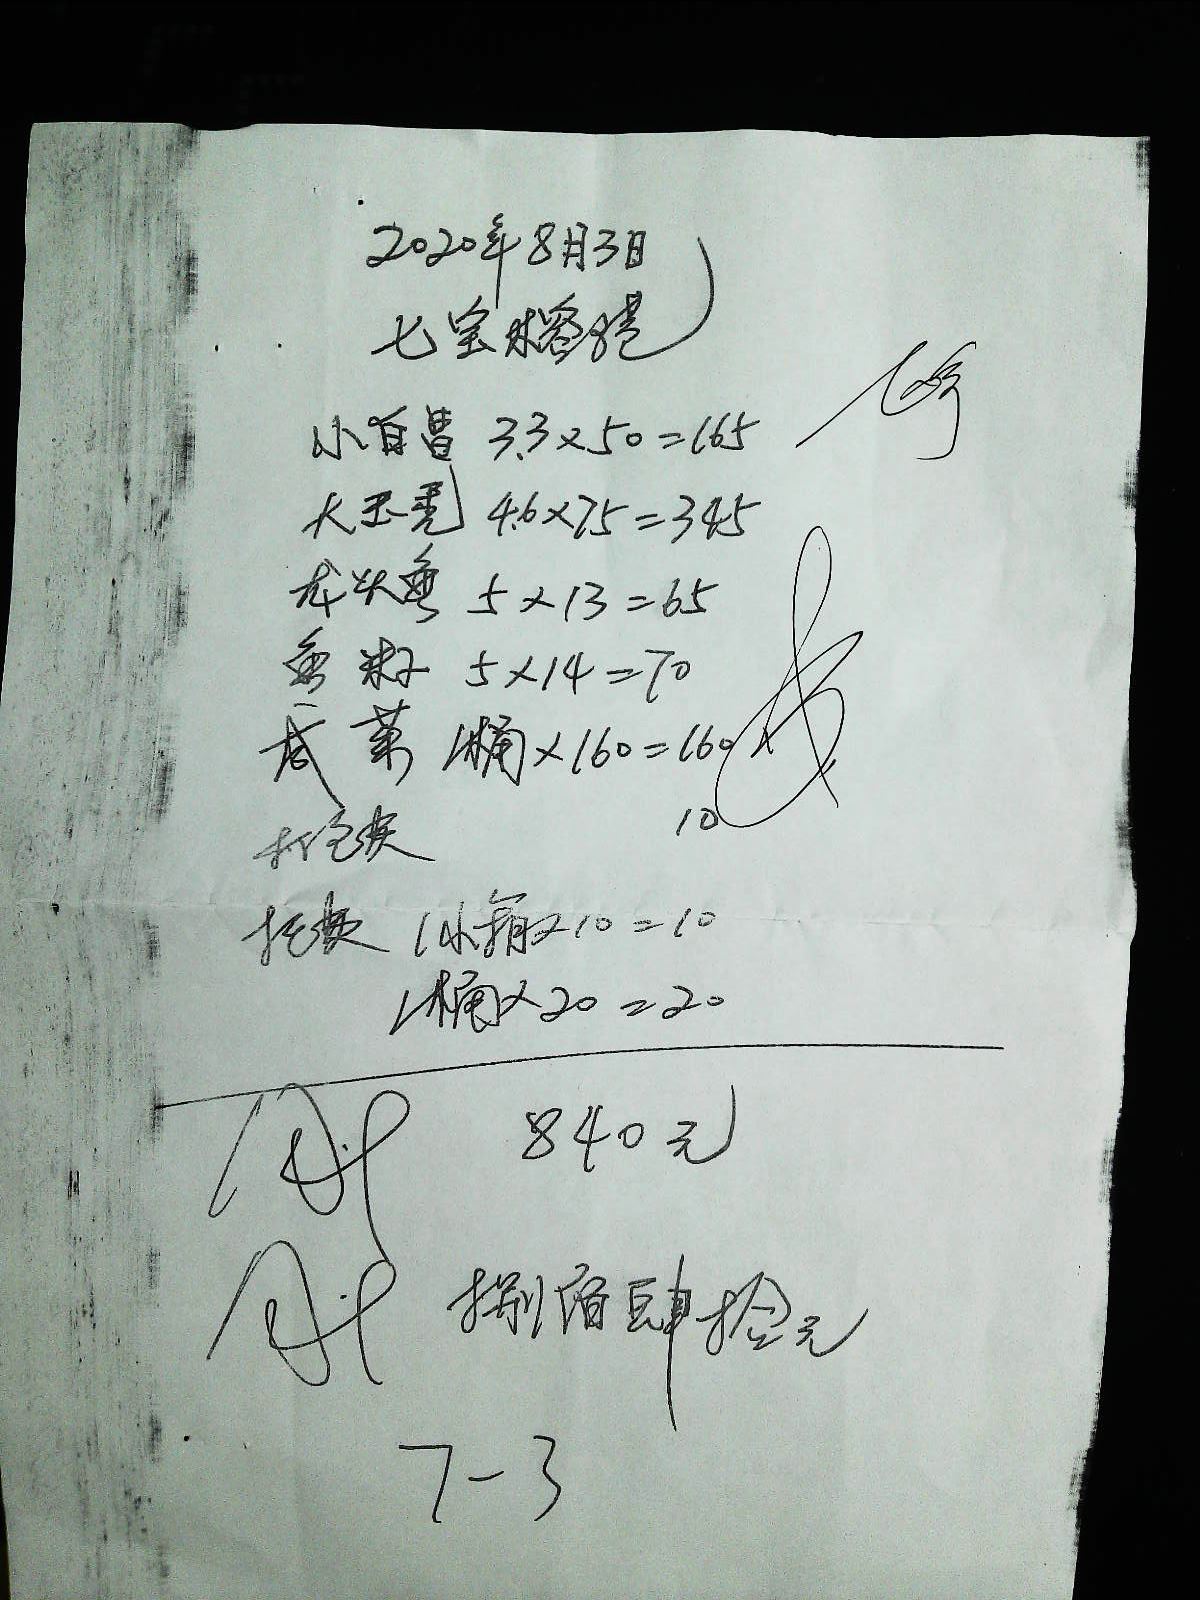 2020年8月3日
七宝
小白昌 3.3×50=165
大玉秃 4.6×75=345
龙头鱼 5×13=65
鱼籽 5×14=70
咸菜 1桶×160=160
打包费 10
托费 1小箱×10=10
1桶×20=20
840元
捌佰肆拾元
7-3